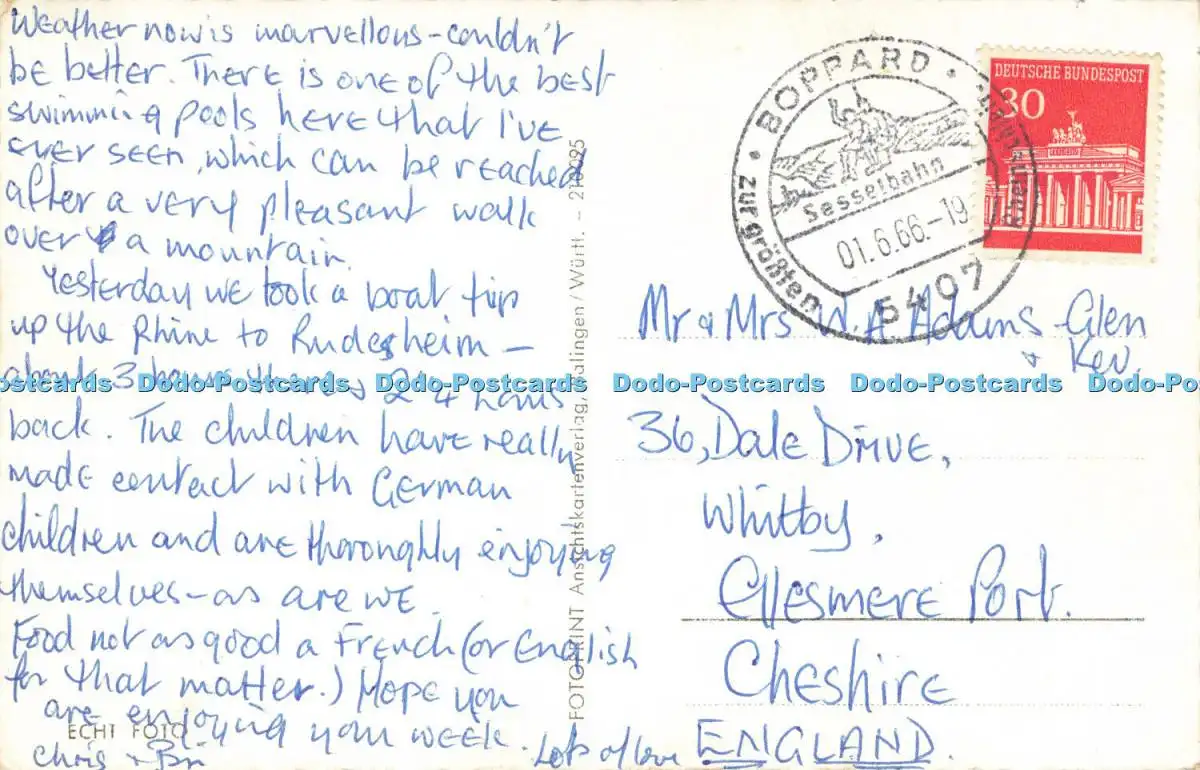 Weather now is marvellous - couldn't
be better. There is one of the best
swimming pools here that I've
ever seen, which can be reached
after a very pleasant walk
over a mountain.
Yesterday we took a boat trip
up the Rhine to Rudesheim -
about 3 hours there, 2 1/4 hours
back. The children have really
made contact with German
children and are thoroughly enjoying
themselves - as are we.
Food not as good a French (or English
for that matter.) Hope you
are enjoying your week.
Lots of love
Chris + Bri
ECHT FOTO
FOTOPRINT Ansichtskartenverlag, Balingen/Württ. -
BOPPARD
zur größten
Sesselbahn
01.6.66.-19
5407
DEUTSCHE BUNDESPOST
30
Mr & Mrs W.A. Adams - Glen
+ Kev.
36, Dale Drive,
Whitby,
Ellesmere Port.
Cheshire
ENGLAND.
Dodo-Postcards Dodo-Postcards Dodo-Postcards Dodo-Postcards Dodo-Postcards